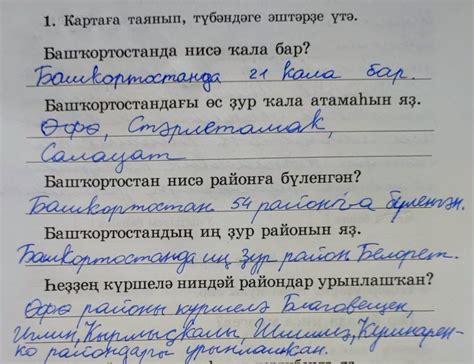 1. Картаға таянып, түбәндәге эштәрҙе үтә.
Башҡортостанда нисә ҡала бар?
Башкортостанда 21 кала бар.
Башҡортостандағы өс ҙур ҡала атамаһын яҙ.
Өфө, Стәрлетамак,
Салауат
Башҡортостан нисә районға бүленгән?
Башкортостан 54 районға бүленгән.
Башҡортостандың иң ҙур районын яҙ.
Башкортостанда иң ҙур район Белорет.
Һеҙҙең күршелә ниндәй райондар урынлашҡан?
Өфө районы күршелә Благовещен,
Иглин, Кырмыскалы, Шишмә, Кушнарен-
ко райондары урынлашкан.